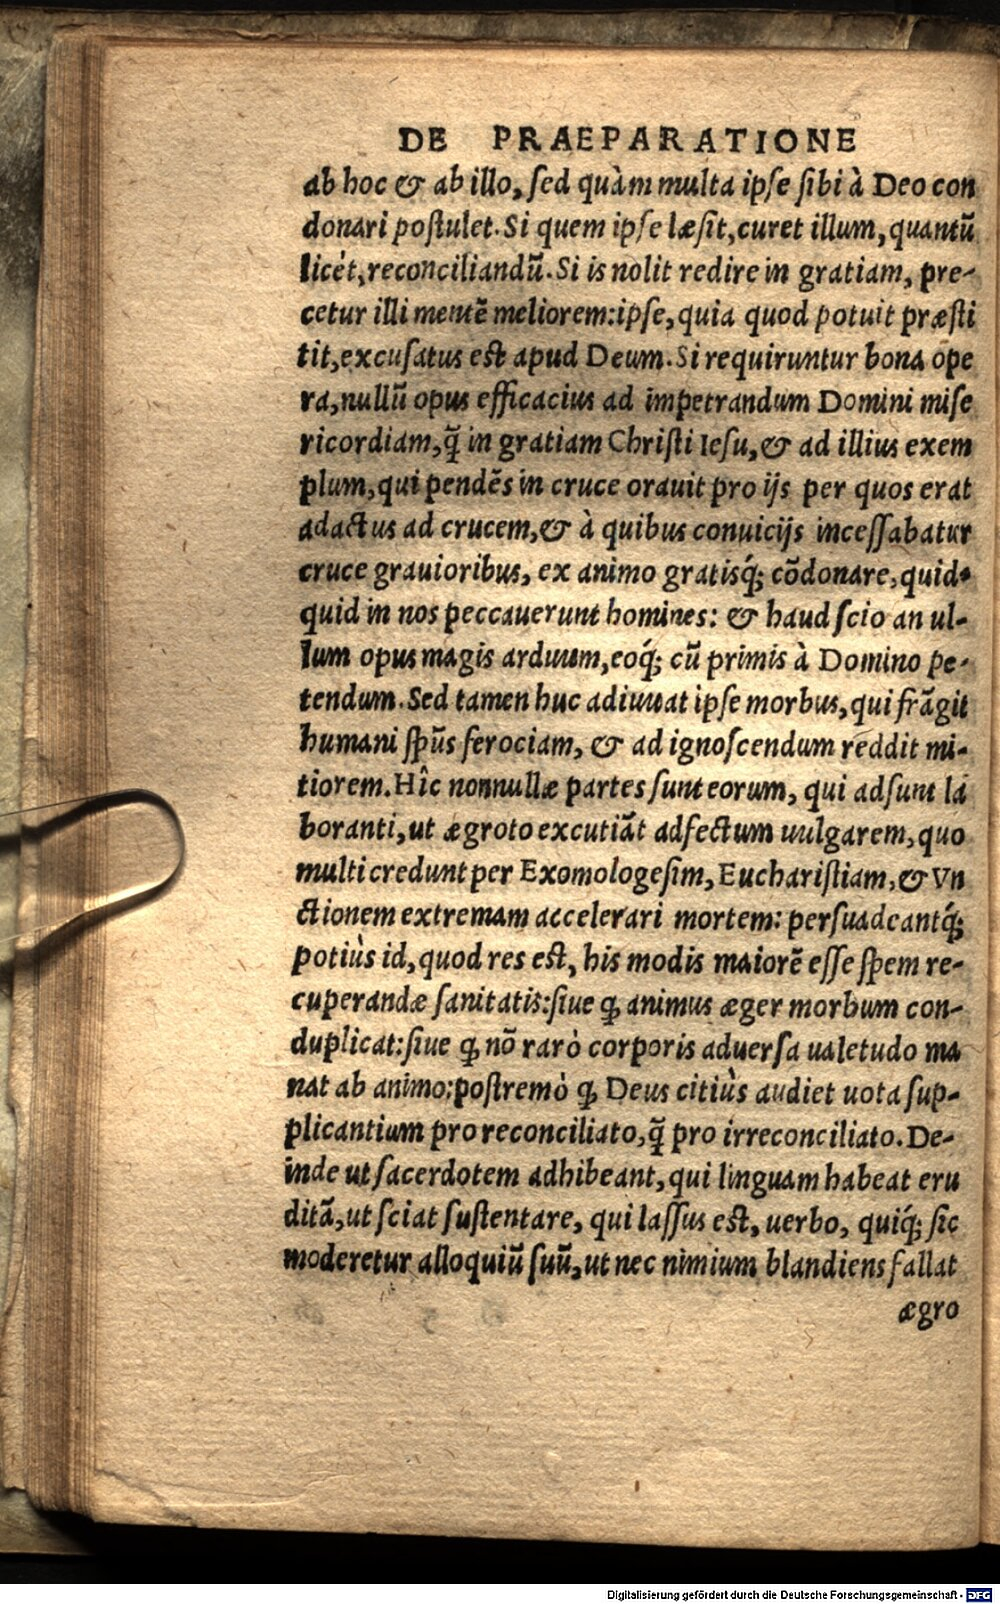 DE PRAEPARATIONE
ab hoc & ab illo, ſed quàm multa ipſe ſibi à Deo con
donari poſtulet. Si quem ipſe læſit, curet illum, quantũ
licèt, reconciliandũ. Si is nolit redire in gratiam, pre-
cetur illi mentẽ meliorem: ipſe, quia quod potuit præſti
tit, excuſatus est apud Deum. Si requiruntur bona ope
ra, nullũ opus efficacius ad impetrandum Domini miſe
ricordiam, q̃ in gratiam Chriſti Ieſu, & ad illius exem
plum, qui pendẽs in cruce orauit pro ijs per quos erat
adactus ad crucem, & à quibus conuicijs inceſſabatur
cruce grauioribus, ex animo gratisq́; cõdonare, quid-
quid in nos peccauerunt homines: & haud ſcio an ul-
lum opus magis arduum, eoq́; cũ primis à Domino pe-
tendum. Sed tamen huc adiuuat ipſe morbus, qui frãgit
humani ſpũs ferociam, & ad ignoſcendum reddit mi-
tiorem. Hîc nonnullæ partes ſunt eorum, qui adſunt la
boranti, ut ægroto excutiãt adfectum uulgarem, quo
multi credunt per Exomologeſim, Euchariſtiam, & Vn
ctionem extremam accelerari mortem: perſuadeantq́;
potiùs id, quod res est, his modis maiorẽ eſſe ſpem re-
cuperandæ ſanitatis: ſiue ꝙ animus æger morbum con-
duplicat: ſiue ꝙ nõ rarò corporis aduerſa ualetudo ma
nat ab animo: poſtremò ꝙ Deus citiùs audiet uota ſup-
plicantium pro reconciliato, q̃ pro irreconciliato. De-
inde ut ſacerdotem adhibeant, qui linguam habeat eru
ditã, ut ſciat ſuſtentare, qui laſſus est, uerbo, quiq́; ſic
moderetur alloquiũ ſuũ, ut nec nimium blandiens fallat
ægro
Digitalisierung gefördert durch die Deutsche Forschungsgemeinschaft - DFG